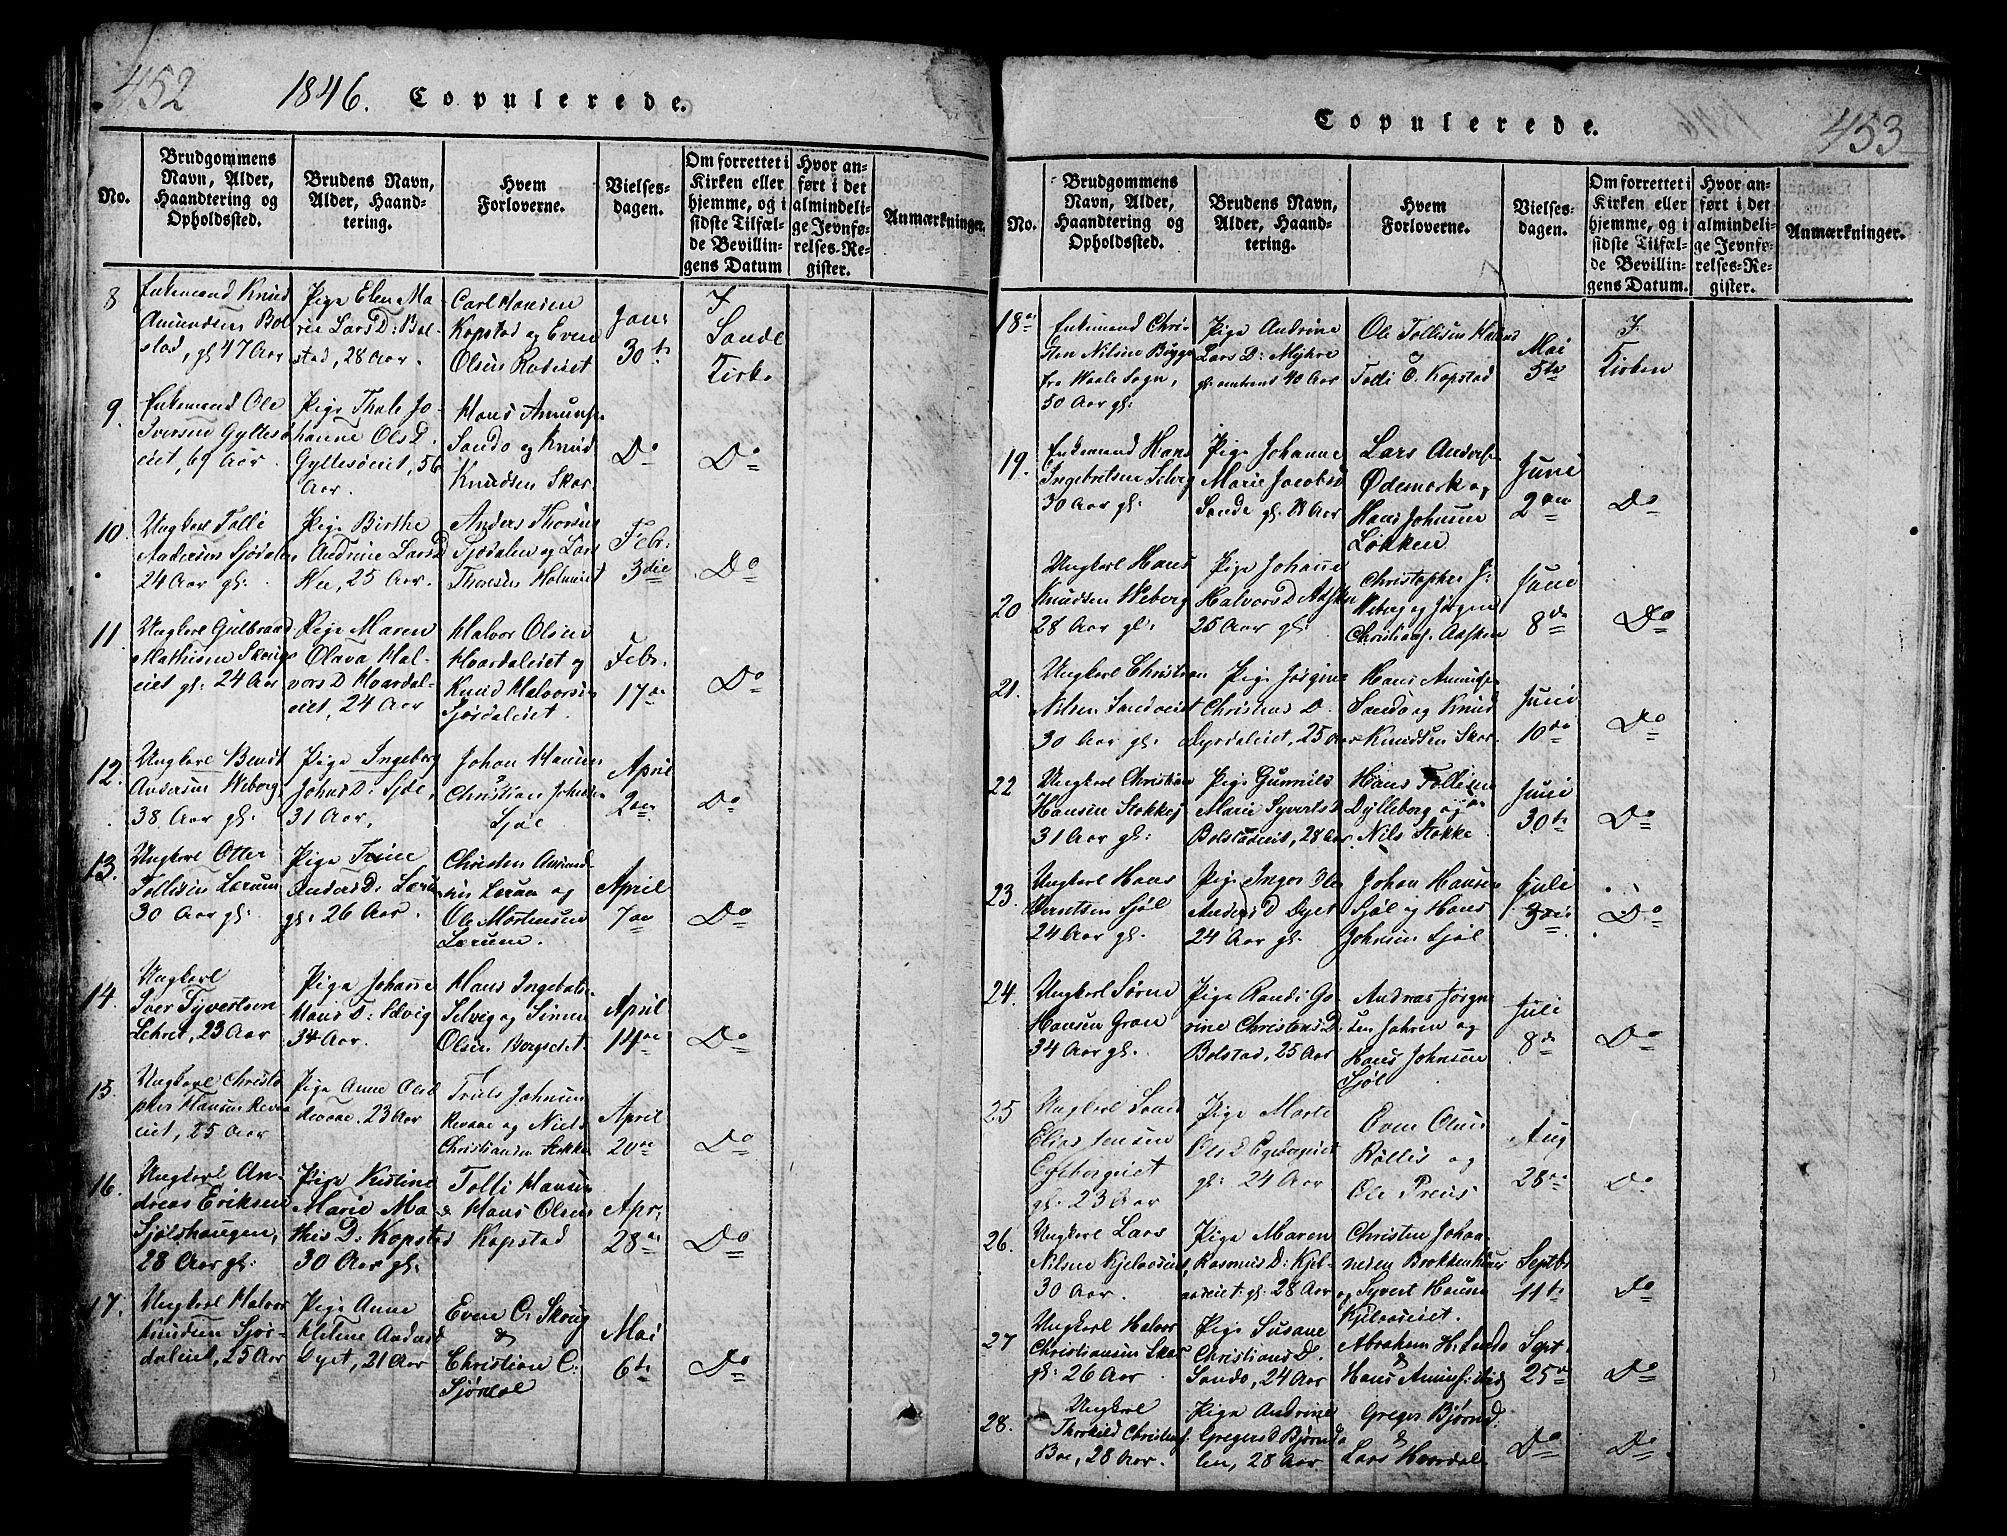 452
1846. Copulerede.
No.
Brudgommens
Navn, Alder,
Haandtering og
Opholdssted.
Brudens Navn,
Alder, Haand-
tering.
Hvem
Forloverne.
Vielses-
dagen.
Om forrettet i
Kirken eller
hjemme, og i
sidste Tilfæl-
de Bevillin-
gens Datum
Hvor an-
ført i det
almindeli-
ge Jevnfø-
relses-Re-
gister.
Anmærkninger.
8
Enkemand Knud
Amundsen Bol-
stad, gl 47 Aar
Pige Elen Ma-
rie Lars D: Bol-
stad, 28 Aar.
Carl Hansen
Kopstad og Even
Olsen
Jan:
30te
I
Sande
Kirke
9.
Enkemand Ole
Iversen
eiet, 69 Aar
Pige Thale Jo-
hanne Ols D.
56
Aar.
Hans Amunds
Sando og Knud
Knudsen Skar.
Do
Do
10.
Ungkarl Tolli
Andersen Sjødalen
24 Aar gl:
Pige Birthe
Andrine Lars D
25 Aar.
Anders Thorsen
Sjødalen og Lars
Thorsen
Febr:
3die
Do
11.
Ungkarl Gulbrand
Mathisen
eiet gl: 24 Aar
Pige Maren
Olava Hal-
vors D Hvardal-
eiet, 24 Aar
Halvor Olsen
Hvardaleiet og
Knud Halvorsen
Sjørdaleiet.
Febr.
17de
Do
12.
Ungkarl Bendt
Andersen Weborg
38 Aar gl:
Pige Ingeborg
Johns D: Sjøl,
31 Aar,
Johan Hansen
& Christian Johnsen
Sjøl
April
2den
Do
13.
Ungkarl Otter
Tollisen Lærum
30 Aar gl:
Pige Trine
Anders D: Lærum
gl: 26 Aar.
Christen Amund-
sen Lærum og
Ole Mortensen
Lærum.
April
7de
Do
14.
Ungkarl
Iver Syvertsen
23 Aar
Pige Johanne
Hans D: Selvig
34 Aar.
Hans Ingebrets.
Selvig og Simen
Olsen
April
14de
Do
15.
Ungkarl Christo-
pher Hansen Revaa-
eiet, 25 Aar
Pige Anne Ols D
Revaae. 23 Aar
Truls Johnsen
Revaae og Niels
Christiansen Stokke
April
20de
Do
16.
Ungkarl An-
dreas Eriksen
Sjølshaugen,
28 Aar gl:
Pige Kirstine
Marie Ma-
this D: Kopstad
30 Aar gl:
Tolli Hansen
& Hans Olsen
Kopstad
Apr:
28de
Do
17.
Ungkarl Halvor
Knudsen Sjør-
daleiet, 25 Aar
Pige Anne
Helene Anders D
Dyet, 21 Aar
Even C: Skoug
&
Christian C:
Sjørdal
Mai
6te
Do
Copulerede. 453
No.
Brudgommens
Navn, Alder,
Haandtering og
Opholdssted.
Brudens Navn,
Alder, Haand-
tering.
Hvem
Forloverne.
Vielses-
dagen.
Om forrettet i
Kirken eller
hjemme, og i
sidste Tilfæl-
de Bevillin-
gens Datum.
Hvor an-
ført i det
almindeli-
ge Jevnfø-
relses-Re-
gister.
Anmærkninger.
18
Enkemand Chri-
sten Nilsen Bøgge
fra Haale Sogn,
50 Aar gl:
Pige Andrine
Lars D: Myhre
gl: omtrent 40 Aar
Ole Tollisen
Tolli C. Kopstad
Mai
5te
I
Kirken
19.
Enkemand Hans
Ingebretsen Selvig
30 Aar gl:
Pige Johanne
Marie Jacobs D
Sande gl: 28 Aar
Lars Anders.
Ødemark og
Hans Johnsen
Løkken
Juni
2den
Do
20
Ungkarl Hans
Knudsen Weberg
28 Aar gl:
Pige Johanne
Halvors D
25 Aar gl:
Christopher J:
Weberg og Jørgen
Christians.
Juni
8de
Do
21.
Ungkarl Christian
Nilsen Sandeiet
30 Aar gl:
Pige Jørgine
Christens D.
25 Aar
Hans Amunds.
Sando og Knud
Knudsen Skar.
Juni
10de
Do
22
Ungkarl Christian
Hansen Stokkej
31 Aar gl:
Pige Gunnild
Marie Syverts D
Bolstadeiet, 28 Aar
Hans Tollisen
Dylleborg og
Nils Stokke
Juni
30te
Do
23.
Ungkarl Hans
Berntsen Sjøl
24 Aar gl:
Pige Inger
Anders D Dyet
24 Aar gl.
Johan Hansen
Sjøl og Hans
Johnsen Sjøl
Juli
3die
Do
24.
Ungkarl Søren
Hansen Gran
34 Aar gl:
Pige Randi Go-
rine Christens D.
Bolstad, 25 Aar
Andreas Jørgn-
sen Jahren og
Hans Johnsen
Sjøl
Juli
8de
Do
25
Ungkarl
Elias Jensen
gl: 23 Aar
Pige Marte
Ols D
gl: 24 Aar
Even Olsen
og
Ole Preus
Aug
28de
Do
26.
Ungkarl Lars
Nilsen Kjelaaseiet,
30 Aar.
Pige Maren
Rasmus D: Kjel-
aaseiet gl: 28 Aar
Christen Johan-
nesen
og Syvert Hansen
Kjelaaseiet.
Septbr
11te
Do
27
Ungkarl Halvor
Christiansen Skar
gl: 26 Aar
Pige Susane
Christians D.
Sando, 24 Aar
Abraham H. Sando
&
Hans Amunds:
Sept.
25de
Do
28.
Ungkarl
Thorkild Christens:
Boe, 28 Aar.
Pige Andrine
Gregers D Bjørnda-
len, 28 Aar
Greger Bjørnd:
&
Lars Hvardal
Do
Do